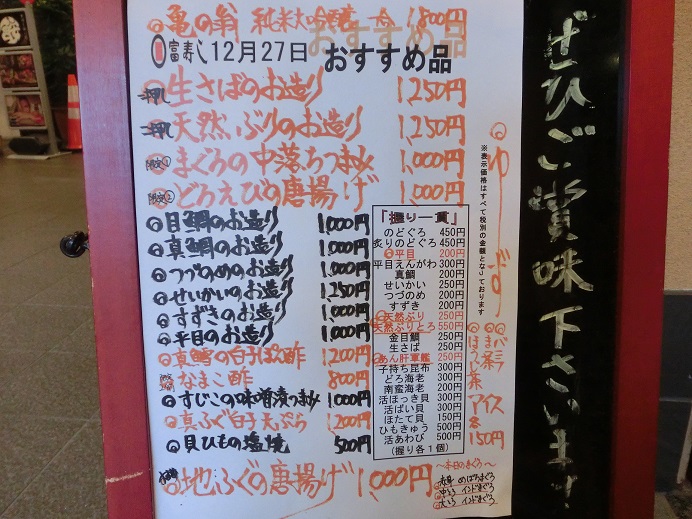 亀の翁 純米大吟醸 一合 1,800円
富寿し 12月27日
おすすめ品
一押し 生さばのお造り 1,250円
二押し 天然ぶりのお造り 1,250円
限定① まぐろの中落ちつまみ 1,000円
限定② どろえびの唐揚げ 1,000円
目鯛のお造り 1,000円
真鯛のお造り 1,000円
つづのめのお造り 1,000円
せいかいのお造り 1,250円
すずきのお造り 1,000円
平目のお造り 1,000円
真鱈の白子ぽん酢 1,200円
なまこ酢 800円
すじこの味噌漬つまみ 1,000円
真ふぐ白子天ぷら 1,200円
貝ひもの塩焼 500円
地ふぐの唐揚げ 1,000円
「握り一貫」
のどぐろ 450円
炙りのどぐろ 450円
◎平目 200円
平目えんがわ 300円
真鯛 200円
せいかい 250円
つづのめ 200円
すずき 200円
◎天然ぶり 250円
天然ぶりとろ 550円
金目鯛 250円
生さば 250円
◎あん肝軍艦 250円
子持ち昆布 300円
どろ海老 200円
南蛮海老 200円
活ほっき貝 300円
活ばい貝 300円
ほたて貝 150円
ひもきゅう 500円
活あわび 500円
(握り各1個)
※表示価格はすべて税別の金額となっております
ゆず
ばニラ
まっ茶
ほうじ茶
アイス
各150円
～本日のまぐろ～
赤身 めばちまぐろ
中とろ インドまぐろ
大とろ インドまぐろ
ぜひご賞味下さいませ!